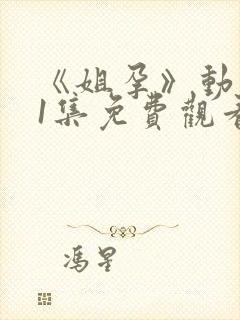 《姐孕》動
1集免費觀看
馮星